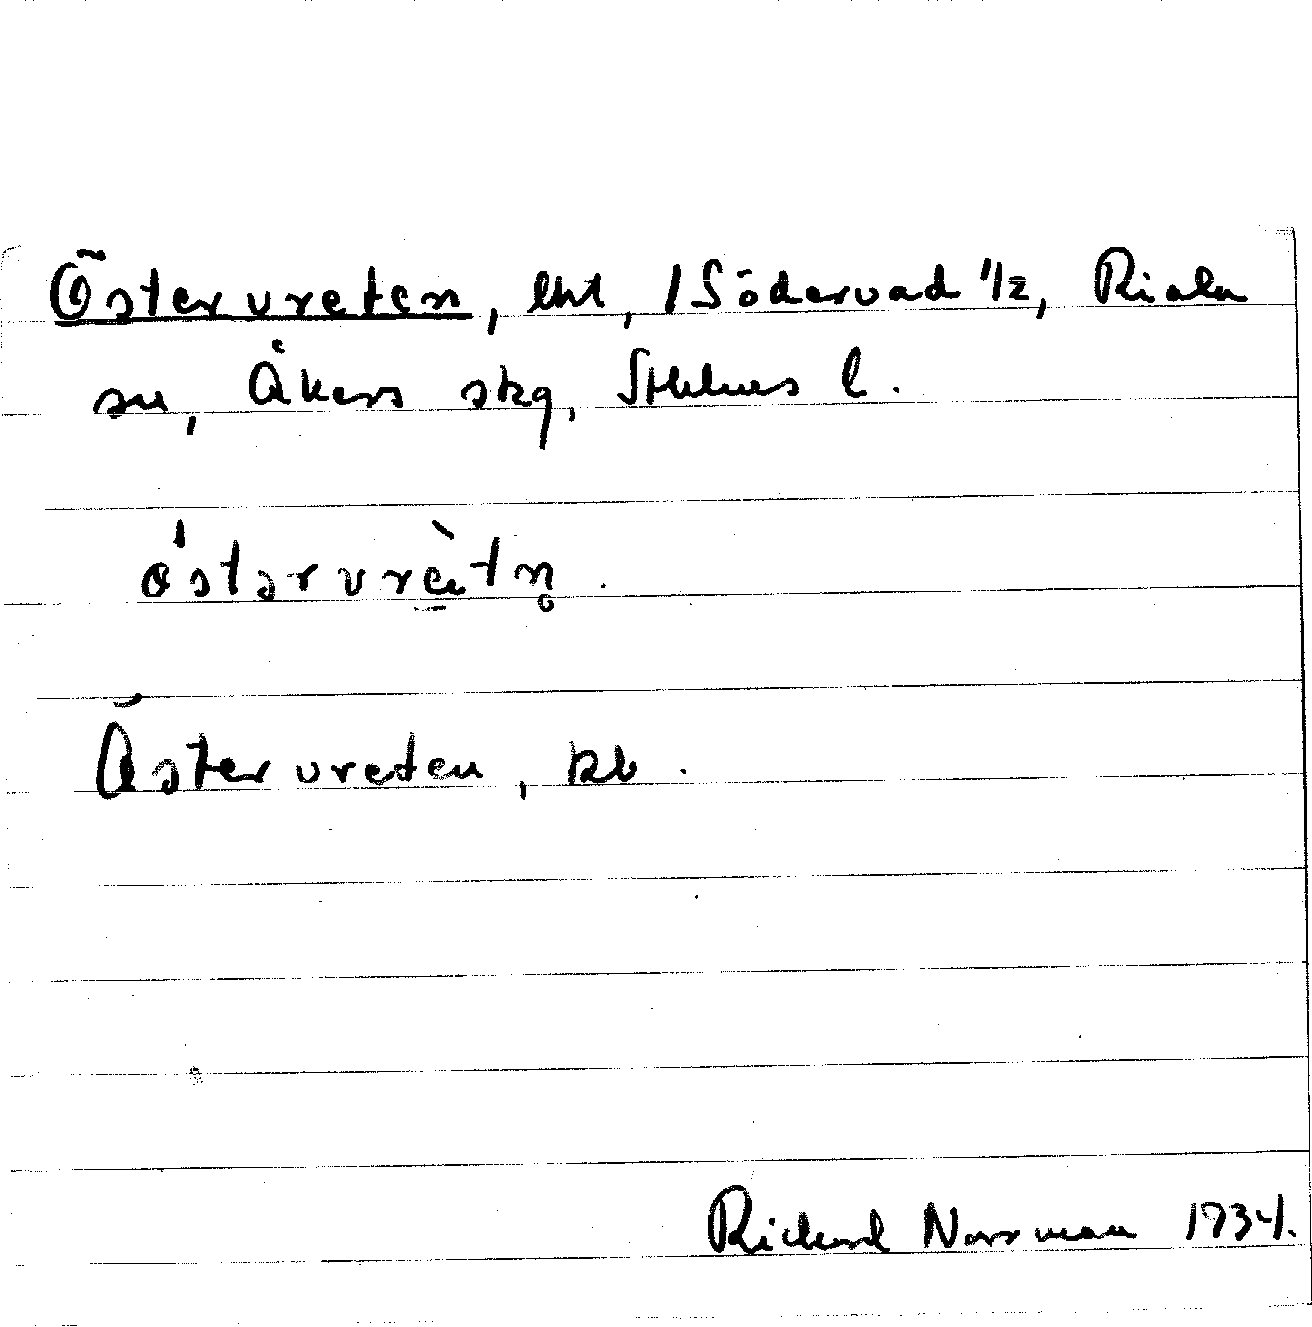 Östervreten, lht, /Södervad 1/2, Riala
sn, Åkers skg, Sthlms l.
östərvrètn̥.
Östervreten, kb.
Rickard Norrman 1934.